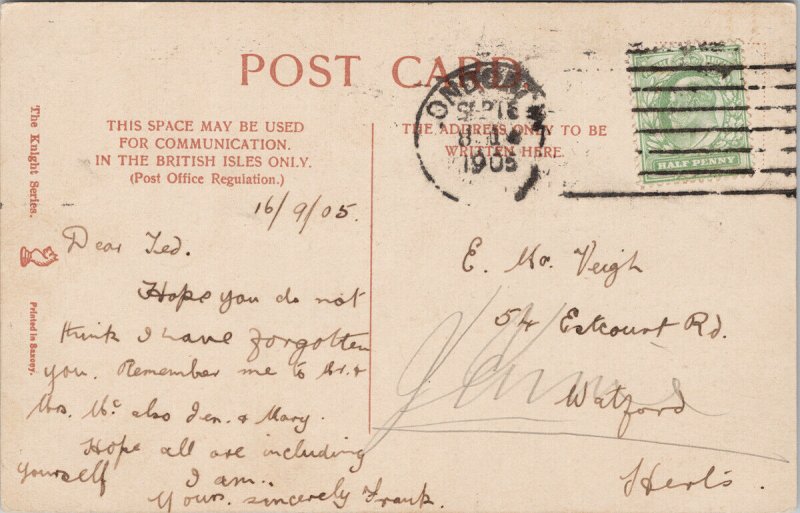 POST CARD.
THIS SPACE MAY BE USED
FOR COMMUNICATION.
IN THE BRITISH ISLES ONLY.
(Post Office Regulation.)
THE ADDRESS ONLY TO BE
WRITTEN HERE.
The Knight Series.
Printed in Saxony.
LONDON
SEP 16
1905
HALF PENNY
16/9/05.
Dear Ted.
Hope you do not
think I have forgotten
you. Remember me to Mr. &
Mrs. Mc also Jen. & Mary.
Hope all are including
yourself I am..
Yours. sincerely Frank.
E. Mc. Veigh
54 Estcourt Rd.
Watford
Herts.